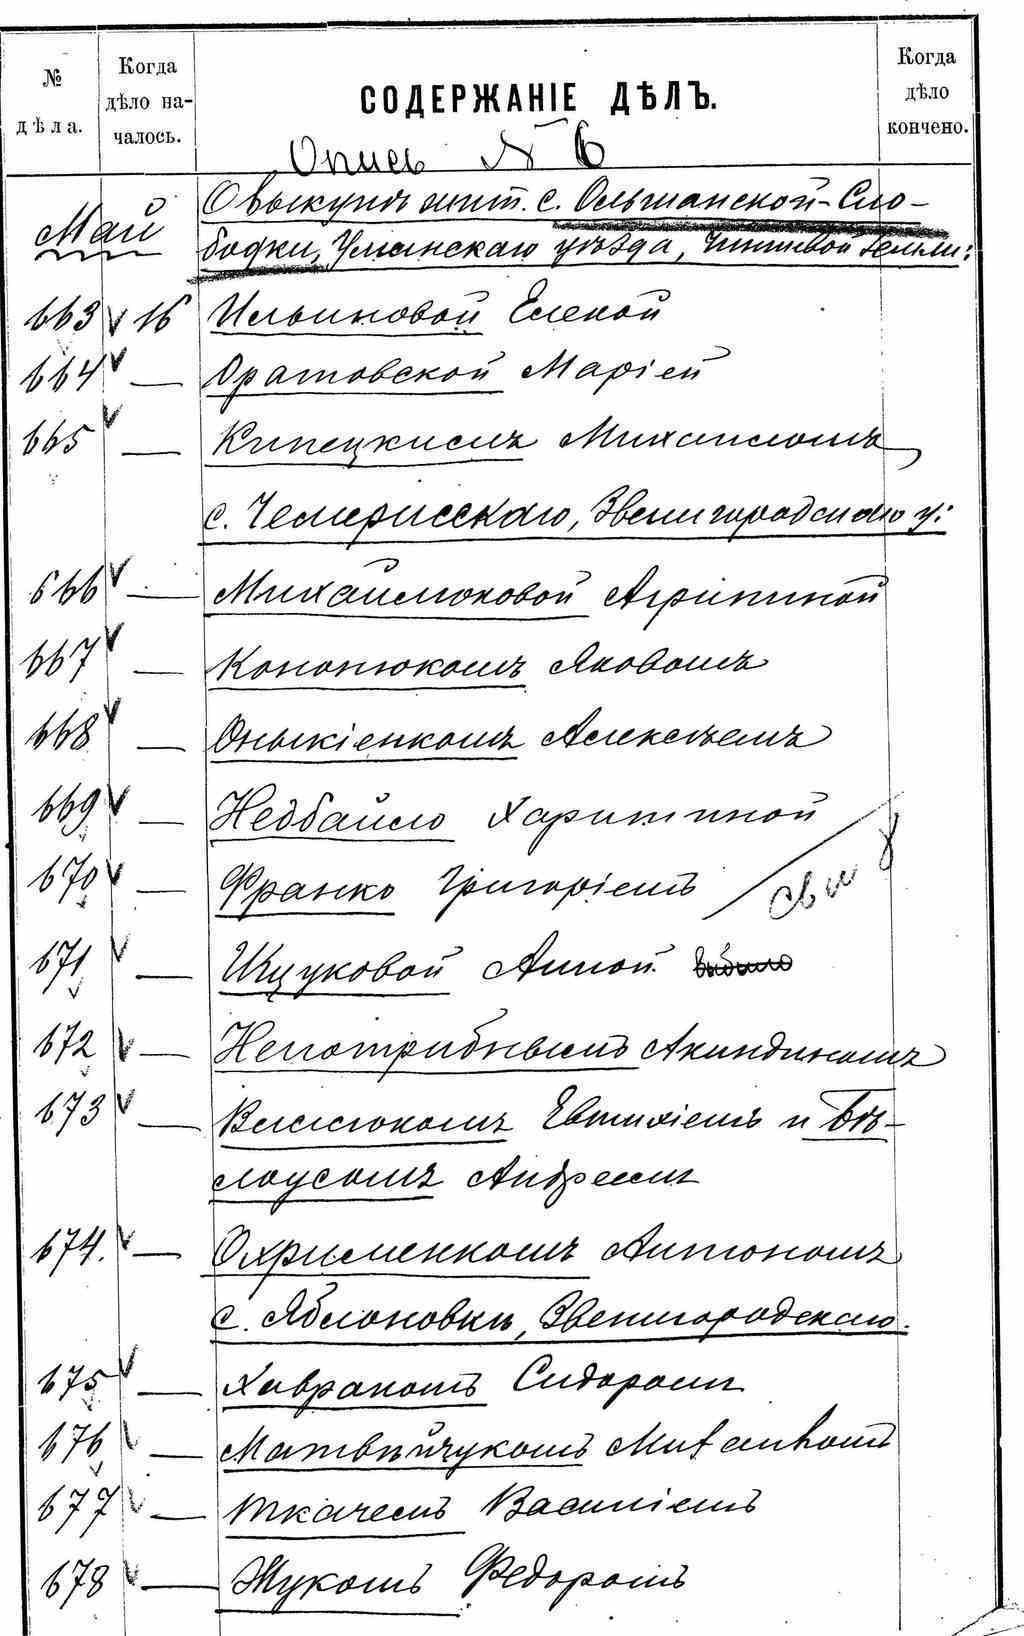 № дѣла.
Когда дѣло началось.
СОДЕРЖАНІЕ ДѢЛЪ.
Когда дѣло кончено.
Опись № 6
Май
О выкупѣ жит. с. Ольшанской-Сло-
бодки, Уманскаго уѣзда, чиншевой земли:
663 v 16 Ильиновой Еленой
664 v — Оратовской Маріей
665 v — Кипецкимъ Михаиломъ
с. Чемерисскаго, Звенигородскаго у:
666 v — Михайлюковой Агрипиной
667 v — Кононюкомъ Яковомъ
668 v — Оныкіенкомъ Алексѣемъ
669 v — Недбайло Харитиной
670 v — Франко Григоріемъ
671 v — Шуковой Анной
672 v — Непотрибнымъ Акиндиномъ
673 v — Власюкомъ Евтихіемъ и Бѣ-
лоусомъ Андреемъ
674. v — Охрименкомъ Антономъ
с. Яблоновки, Звенигородскаго.
675 v — Хавраномъ Сидоромъ
676 v — Матвѣйчукомъ Митаномъ
677 v — Ткачемъ Василіемъ
678 v — Жукомъ Федоромъ